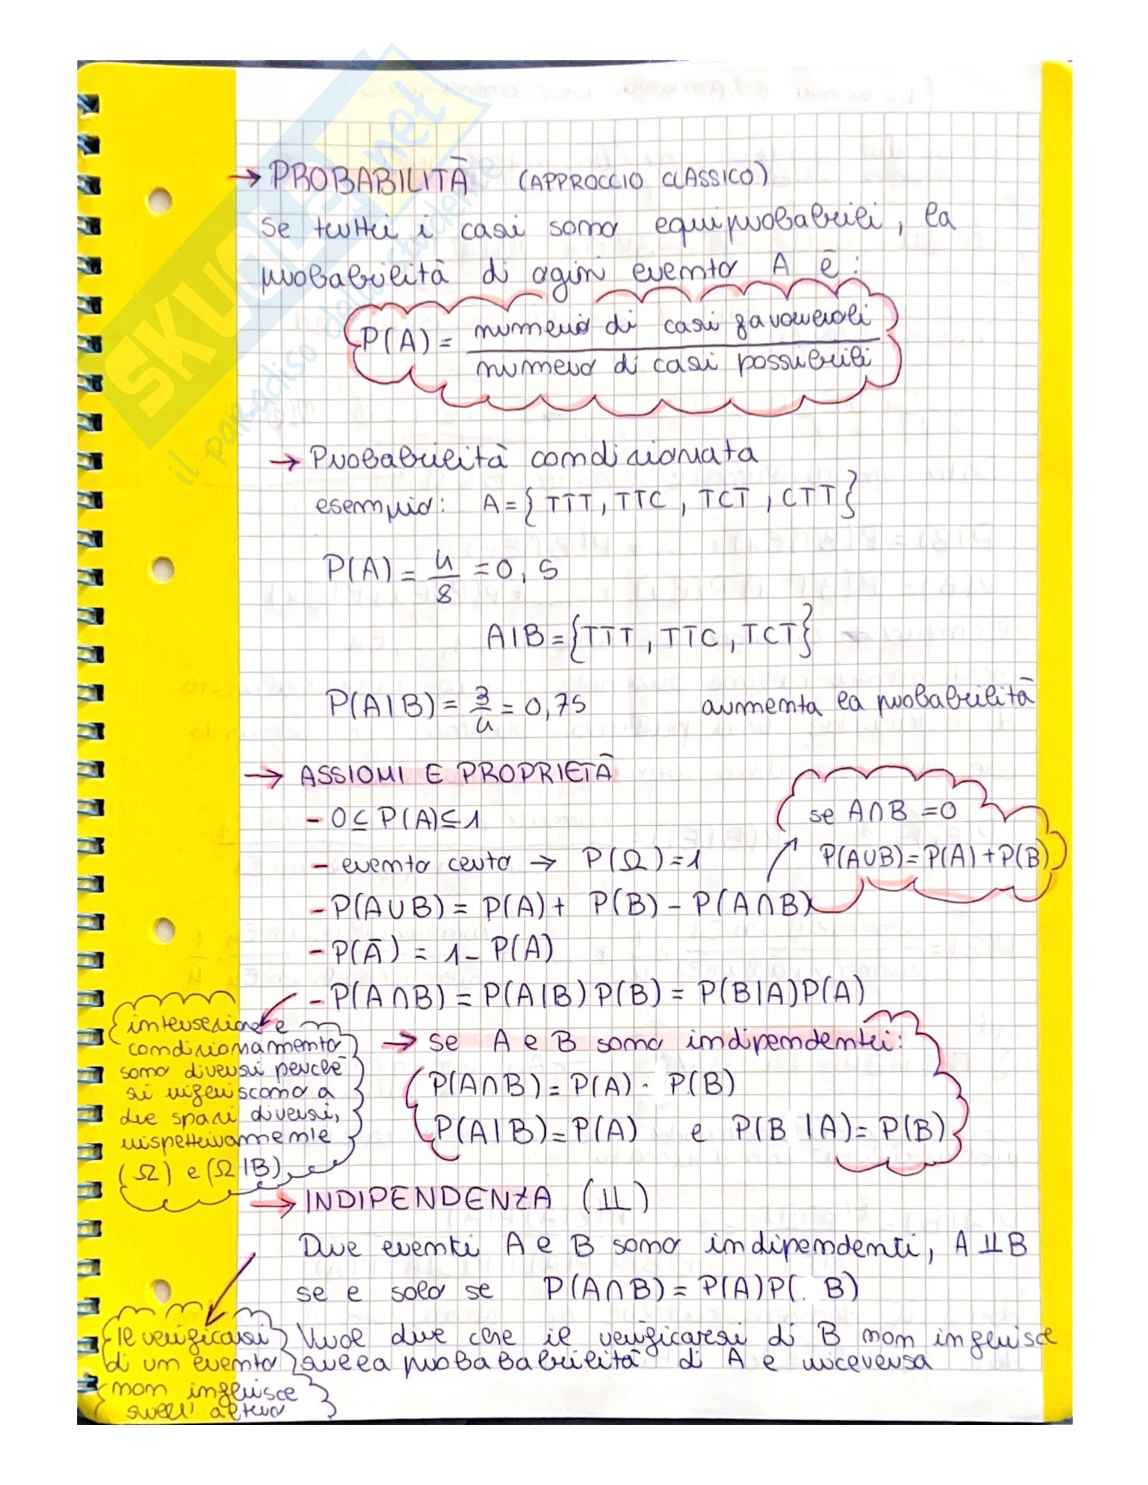 SKUOLA.net
il paradiso dello studente
→ PROBABILITÀ (APPROCCIO CLASSICO)
Se tutti i casi sono equiprobabili, la
probabilità di ogini evento A è:
P(A) = numero di casi favorevoli
numero di casi possibili
→ Probabilità condizionata
esempio: A = { TTT, TTC, TCT, CTT}
P(A) = 4/8 = 0,5
A|B = {TTT, TTC, TCT}
P(A|B) = 3/4 = 0,75 aumenta la probabilità
→ ASSIOMI E PROPRIETÀ
- 0 ≤ P(A) ≤ 1
- evento certo → P(Ω) = 1
- P(A∪B) = P(A) + P(B) - P(A∩B)
se A∩B = 0
P(A∪B) = P(A) + P(B)
- P(Ā) = 1 - P(A)
- P(A∩B) = P(A|B)P(B) = P(B|A)P(A)
intersezione e
condizionamento
sono diversi perché
si riferiscono a
due spazi diversi,
rispettivamente
(Ω) e (Ω|B)
→ se A e B sono indipendenti:
P(A∩B) = P(A) · P(B)
P(A|B) = P(A) e P(B|A) = P(B)
→ INDIPENDENZA (⫫)
Due eventi A e B sono indipendenti, A⫫B
se e solo se P(A∩B) = P(A)P(. B)
Vuol dire che il verificaresi di B non influisce
sulla probabablilità di A e viceversa
il verificarsi
di un evento
non influisce
sull' altro